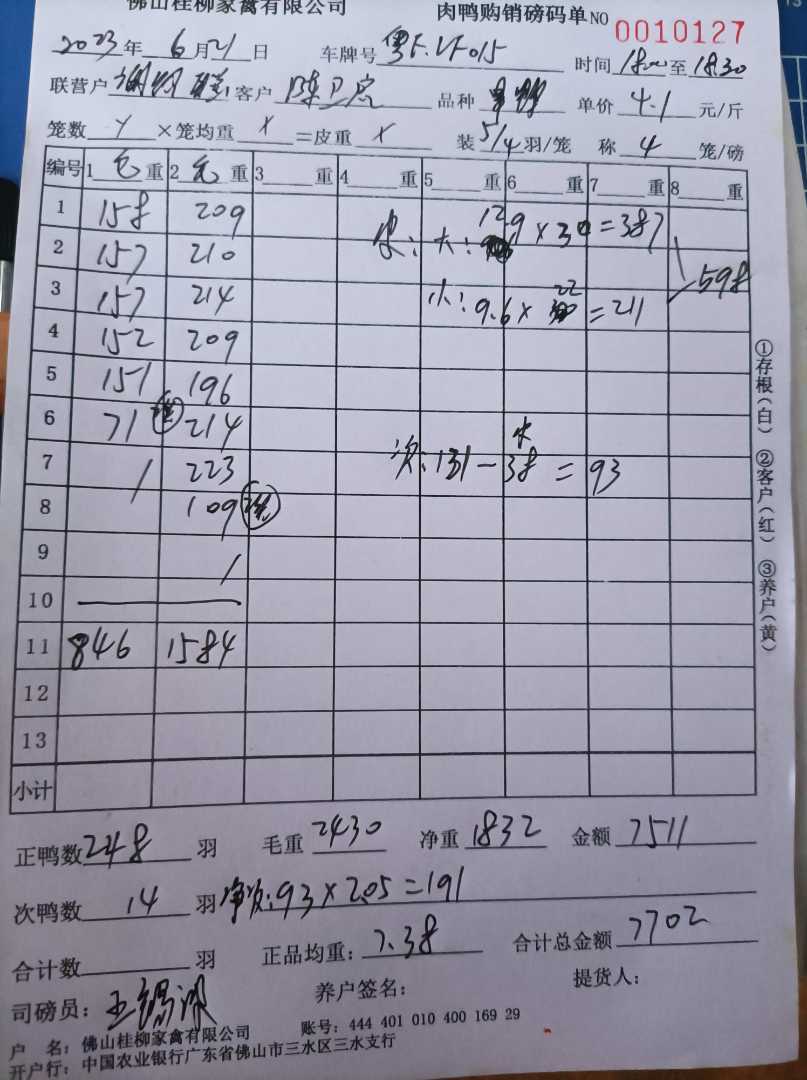 佛山桂柳家禽有限公司 肉鸭购销磅码单 NO 0010127
2023年 6月21日 车牌号 粤F.VF015 时间 18:00 至 18:30
联营户 客户 陈卫 品种 单价 4.1 元/斤
笼数 × 笼均重 = 皮重 装 5/4 羽/笼 称 4 笼/磅
编号 1 毛 重 2 毛 重 3 重 4 重 5 重 6 重 7 重 8 重
1 158 209 皮: 大: 12.9 × 30 = 387
2 157 210 598
3 157 214 小: 9.6 × 22 = 211
4 152 209
5 151 196
6 71 214
7 / 223 次: 131 - 38 水 = 93
8 109
9 /
10
11 846 1584
12
13
小计
正鸭数 248 羽 毛重 2430 净重 1832 金额 7511
次鸭数 14 羽 净次: 93 × 2.05 = 191
合计数 羽 正品均重: 7.38 合计总金额 7702
司磅员: 王 养户签名: 提货人:
户 名: 佛山桂柳家禽有限公司 账号: 444 401 010 400 169 29
开户行: 中国农业银行广东省佛山市三水区三水支行
①存根(白) ②客户(红) ③养户(黄)